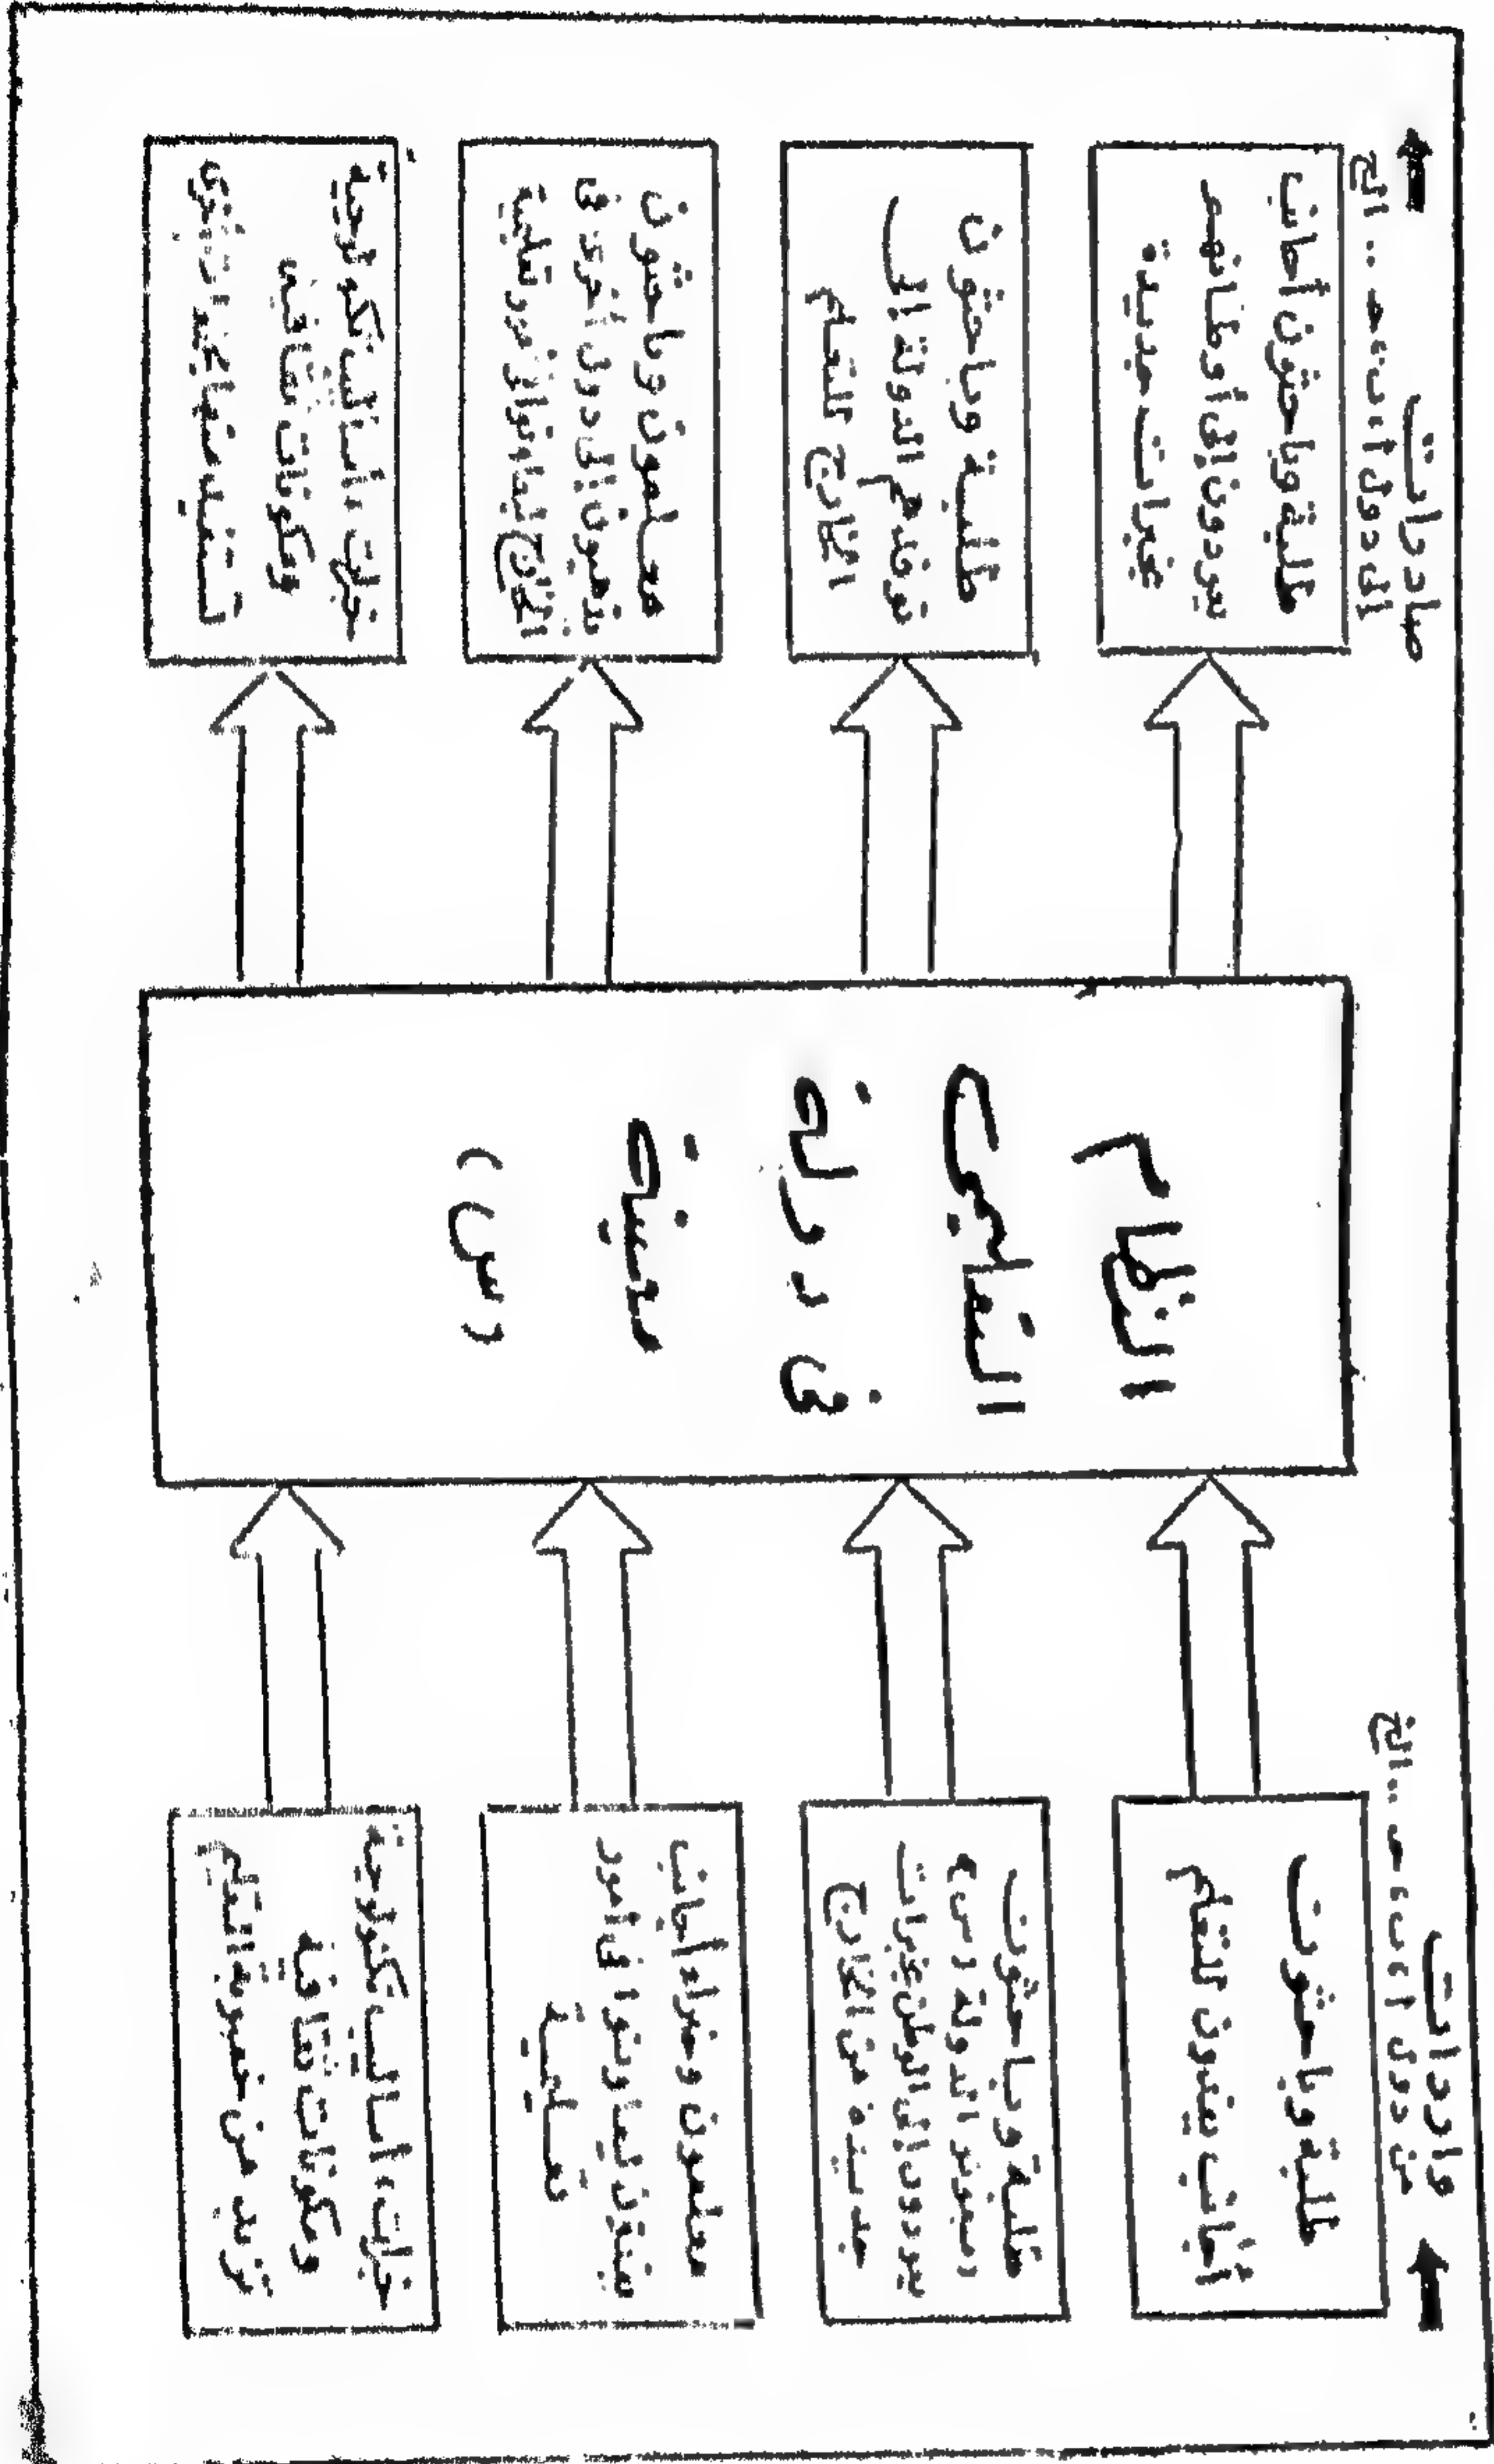 واردات
من دول ا ، ب ، حـ .. الخ
طلبة وباحثون
أجانب يفدون للتعلم
طلبة وباحثون
مبعوثو الدولة (س)
يعودون إلى الوطن بخبرات
جديدة من الخارج
معلمون وخبراء أجانب
يفدون ليعاونوا فى أمور
تعليمية
خبرات، أساليب تكنولوجية
ومكونات ثقافية
تزيد من حيوية التعليم
النظام
التعليمى
فى دولة
معينة
(س)
صادرات
الى دول ا ، ب ، حـ .. الخ
طلبة وباحثون أجانب
يعودون إلى أوطانهم
بخبرات جديدة
طلبة وباحثون
توفدهم الدولة إلى
الخارج للتعلم
معلمون وباحثون
يذهبون إلى دول أخرى فى
الخارج ليعاونوا فى أمور تعليمية
خبرات، أساليب تكنولوجية
ومكونات ثقافية
تستفيد منها مجتمعات أخرى